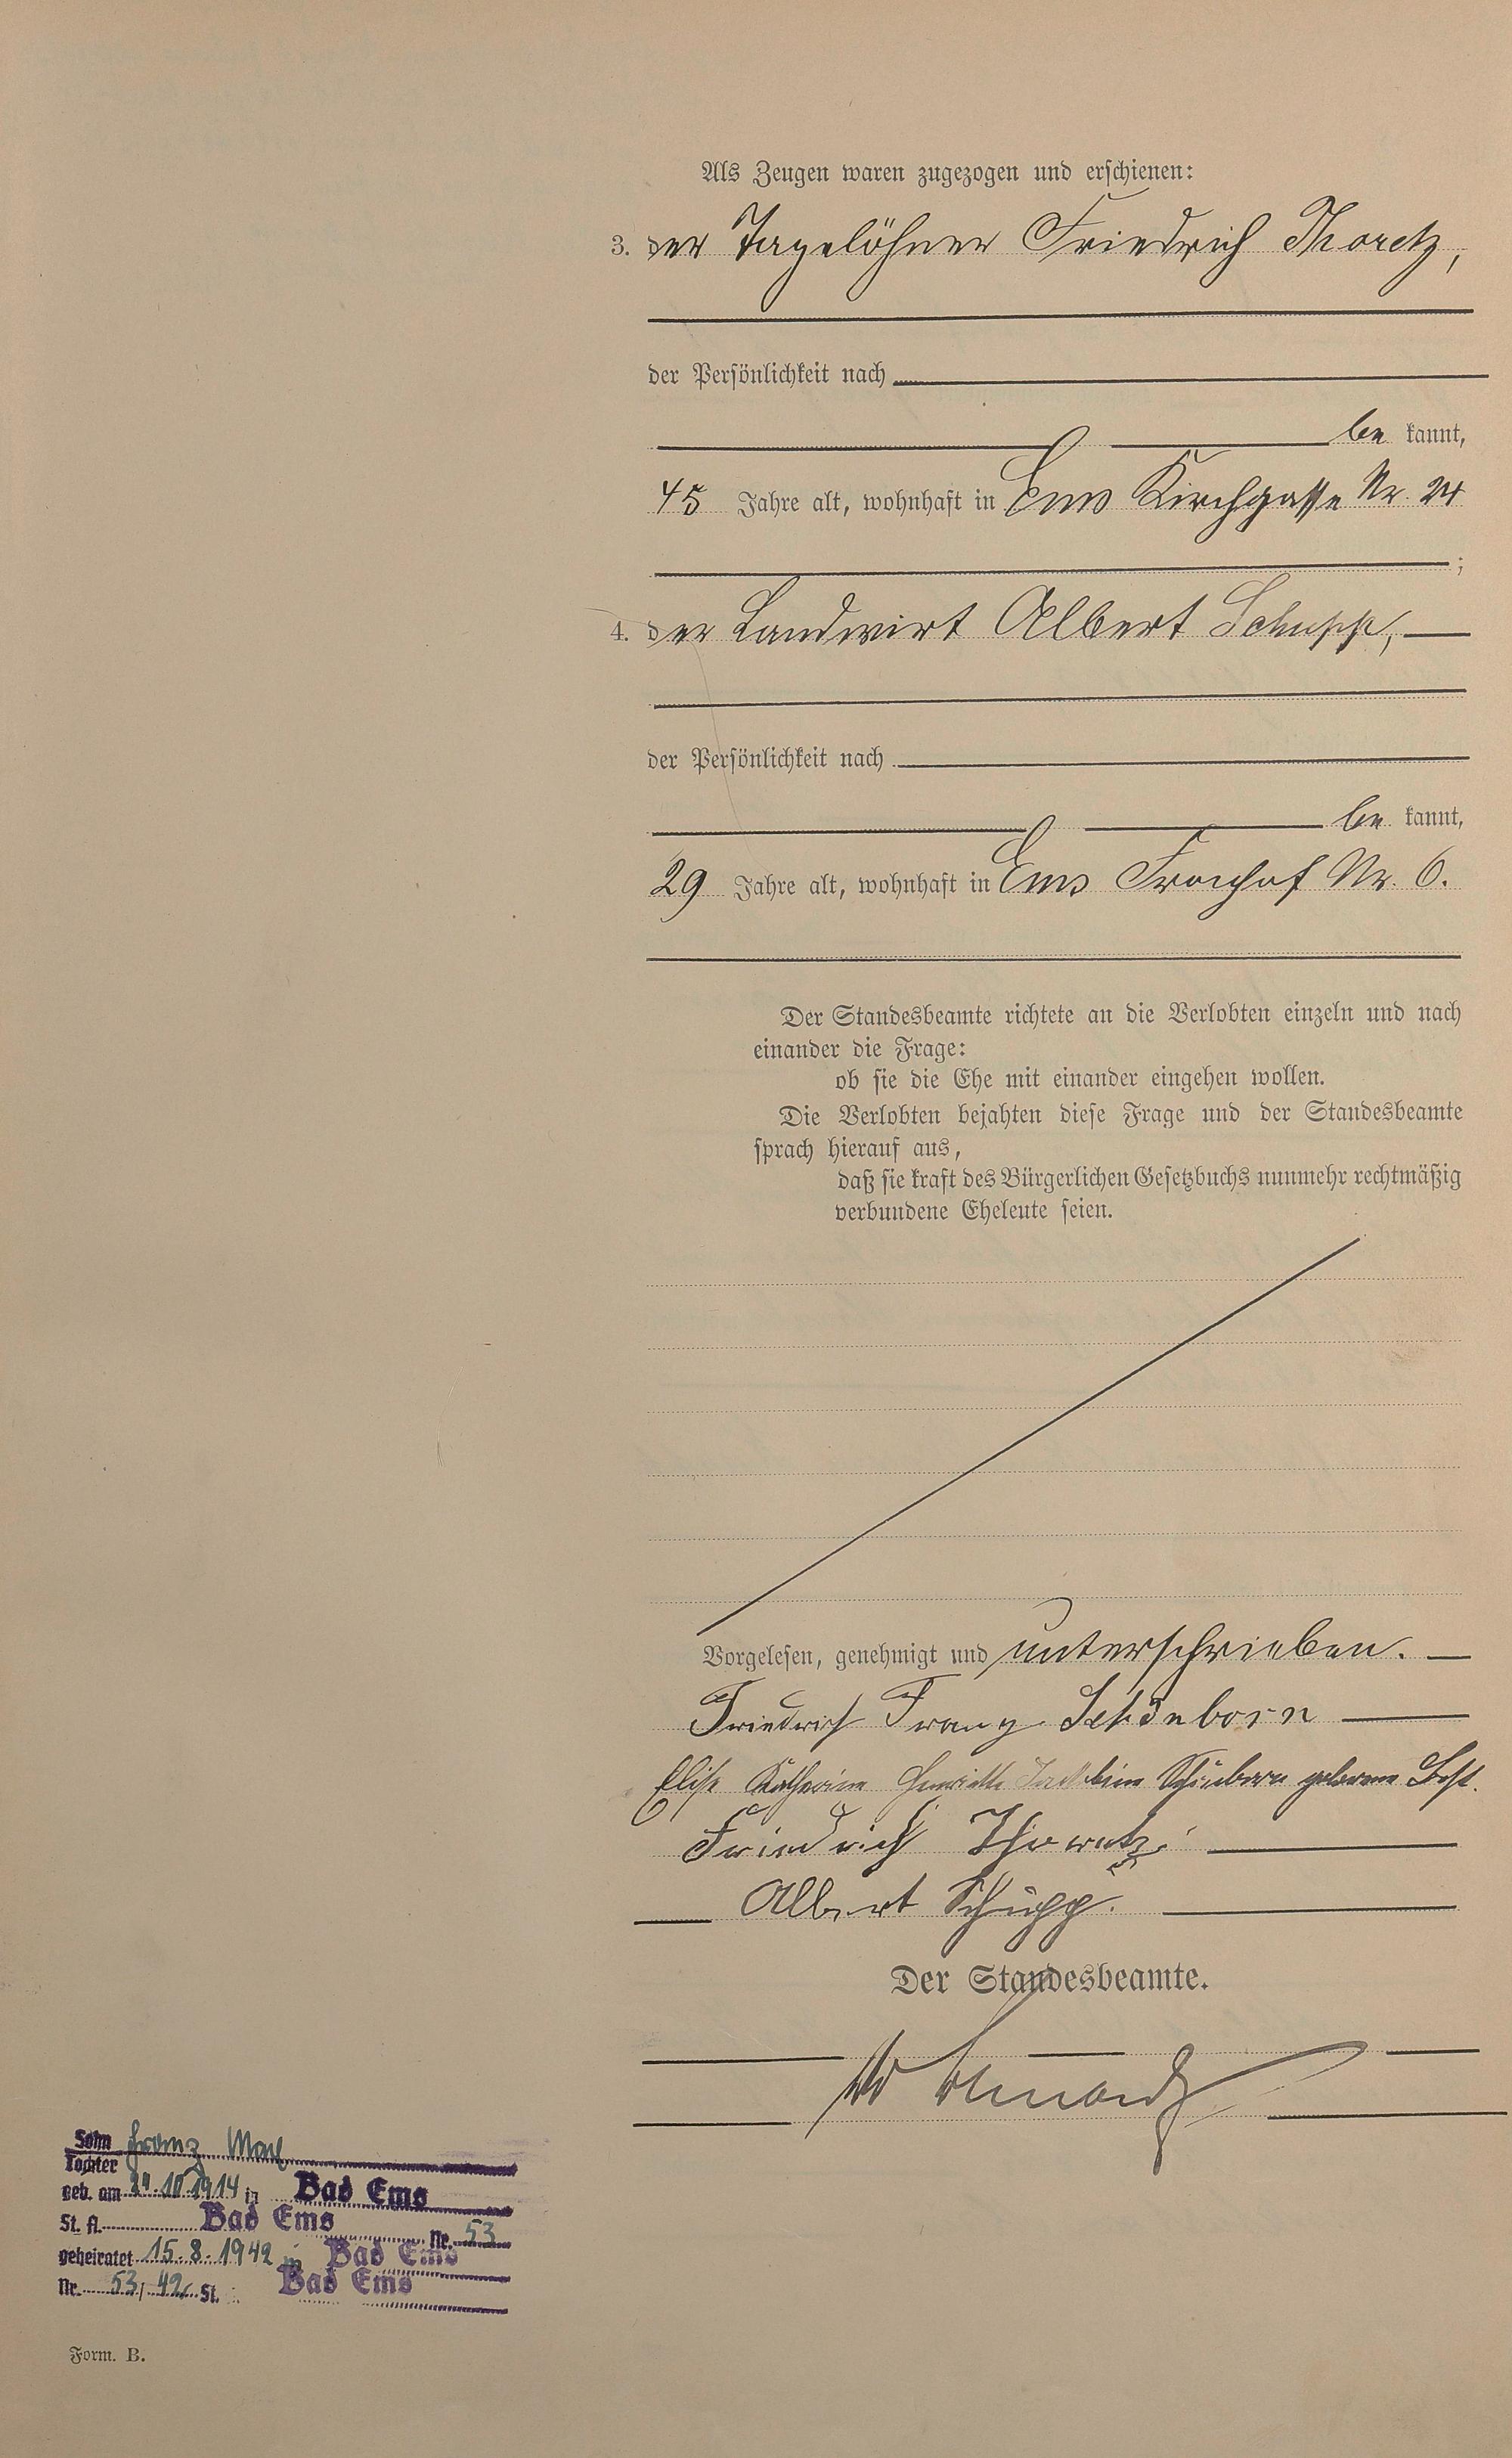 Als Zeugen waren zugezogen und erschienen:
3. der Tagelöhner Friedrich Thoretz,
der Persönlichkeit nach
be kannt,
45 Jahre alt, wohnhaft in Ems Kirchgasse Nr. 24
;
4. der Landwirt Albert Schupp,
der Persönlichkeit nach
be kannt,
29 Jahre alt, wohnhaft in Ems Fronhof Nr. 6.
Der Standesbeamte richtete an die Verlobten einzeln und nach
einander die Frage:
ob sie die Ehe mit einander eingehen wollen.
Die Verlobten bejahten diese Frage und der Standesbeamte
sprach hierauf aus,
daß sie kraft des Bürgerlichen Gesetzbuchs nunmehr rechtmäßig
verbundene Eheleute seien.
Vorgelesen, genehmigt und unterschrieben.
Friedrich Franz Schönborn
Elise Katharine Henriette Schönborn geborene
Friedrich Thoretz
Albert Schupp.
Der Standesbeamte.
Sohn Franz
Tochter
geb. am 24.10.1914 in Bad Ems
St. A. Bad Ems Nr. 53
geheiratet 15.8.1942 in Bad Ems
Nr. 53/42 St. Bad Ems
Form. B.